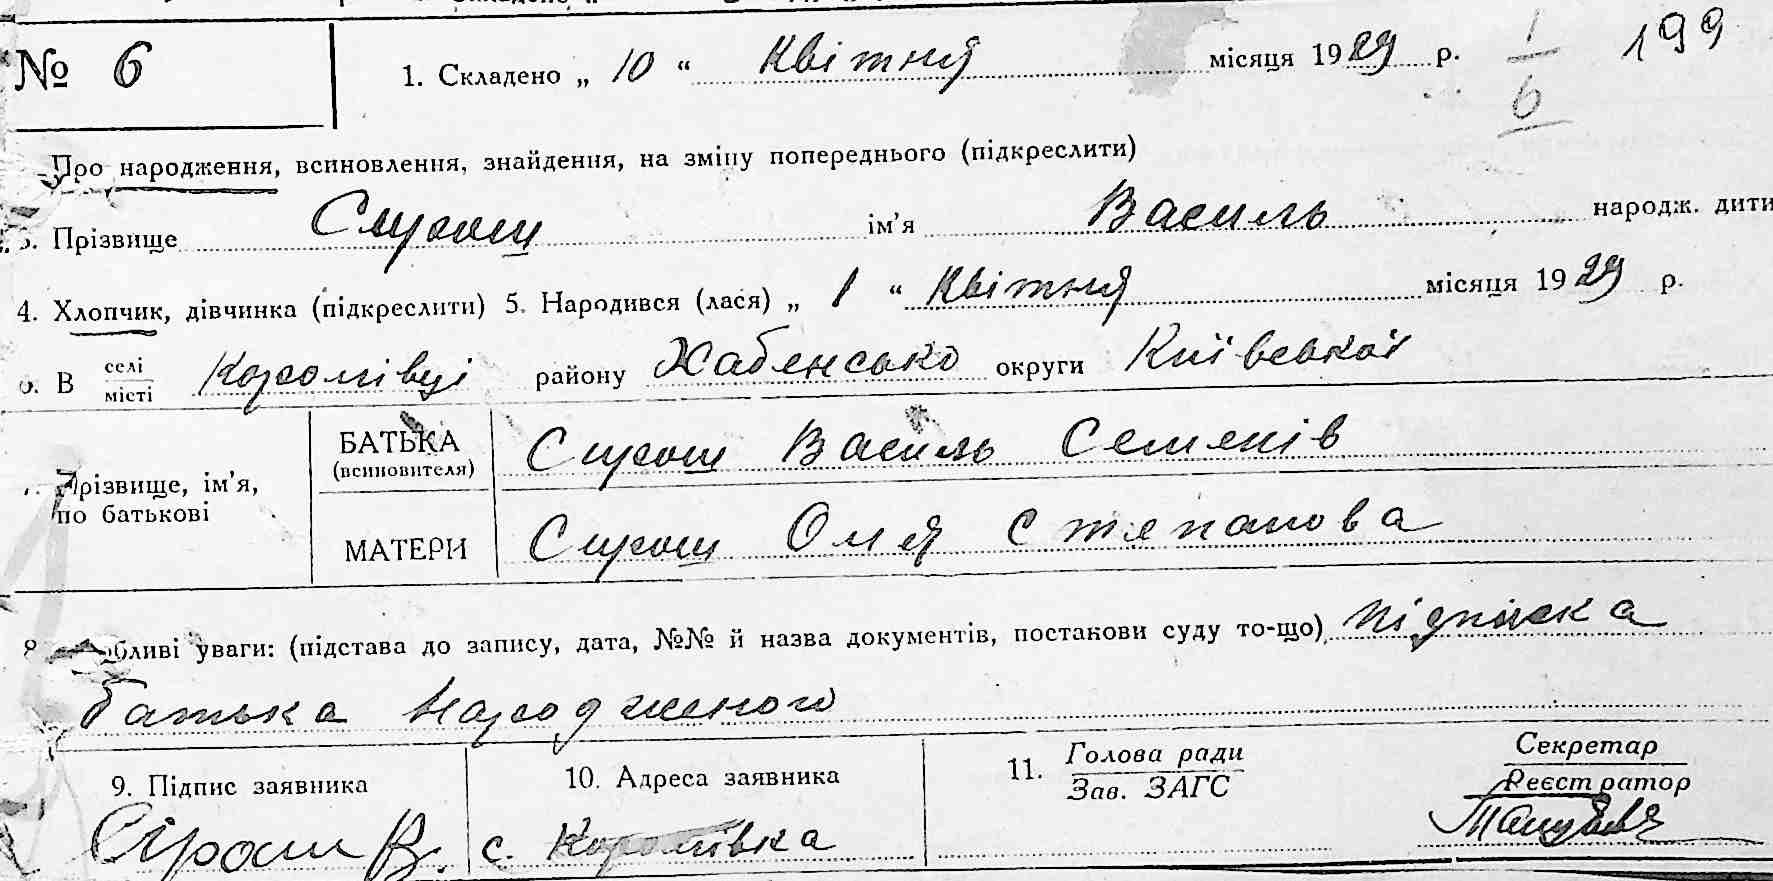 № 6 1. Складено „ 10 “ Квітня місяця 1929 р. 1/6 199
Про народження, всиновлення, знайдення, на зміну попереднього (підкреслити)
3. Прізвище Сирош ім’я Василь народж. дити
4. Хлопчик, дівчинка (підкреслити) 5. Народився (лася) „ 1 “ Квітня місяця 1929 р.
6. В селі/місті Королівці району Хабенсько округи Київської
7. Прізвище, ім’я, по батькові
БАТЬКА (всиновителя) Сирош Василь Семенів
МАТЕРИ Сирош Оля Степанова
8. бливі уваги: (підстава до запису, дата, №№ й назва документів, постакови суду то-що) підписка
батька народженого
9. Підпис заявника 10. Адреса заявника 11. Голова ради Секретар
Зав. ЗАГС Реєстратор
Сірош В. с. Королівка